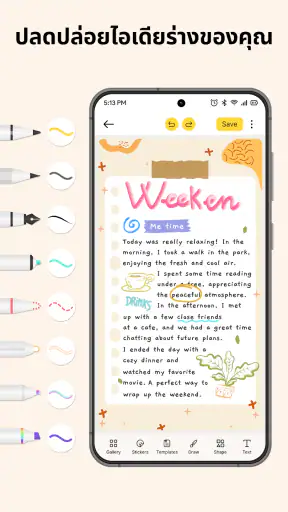 ปลดปล่อยไอเดียร่างของคุณ
5:13 PM
Save
Weeken
Me time
Today was really relaxing! In the
morning, I took a walk in the park,
enjoying the fresh and cool air.
I spent some time reading
under a tree, appreciating
the peaceful atmosphere.
DRINKS
In the afternoon, I met
up with a few close friends
at a cafe, and we had a great time
chatting about future plans.
I ended the day with a
cozy dinner and
watched my favorite
movie. A perfect way to
wrap up the weekend.
Gallery
Stickers
Templates
Draw
Shape
Text